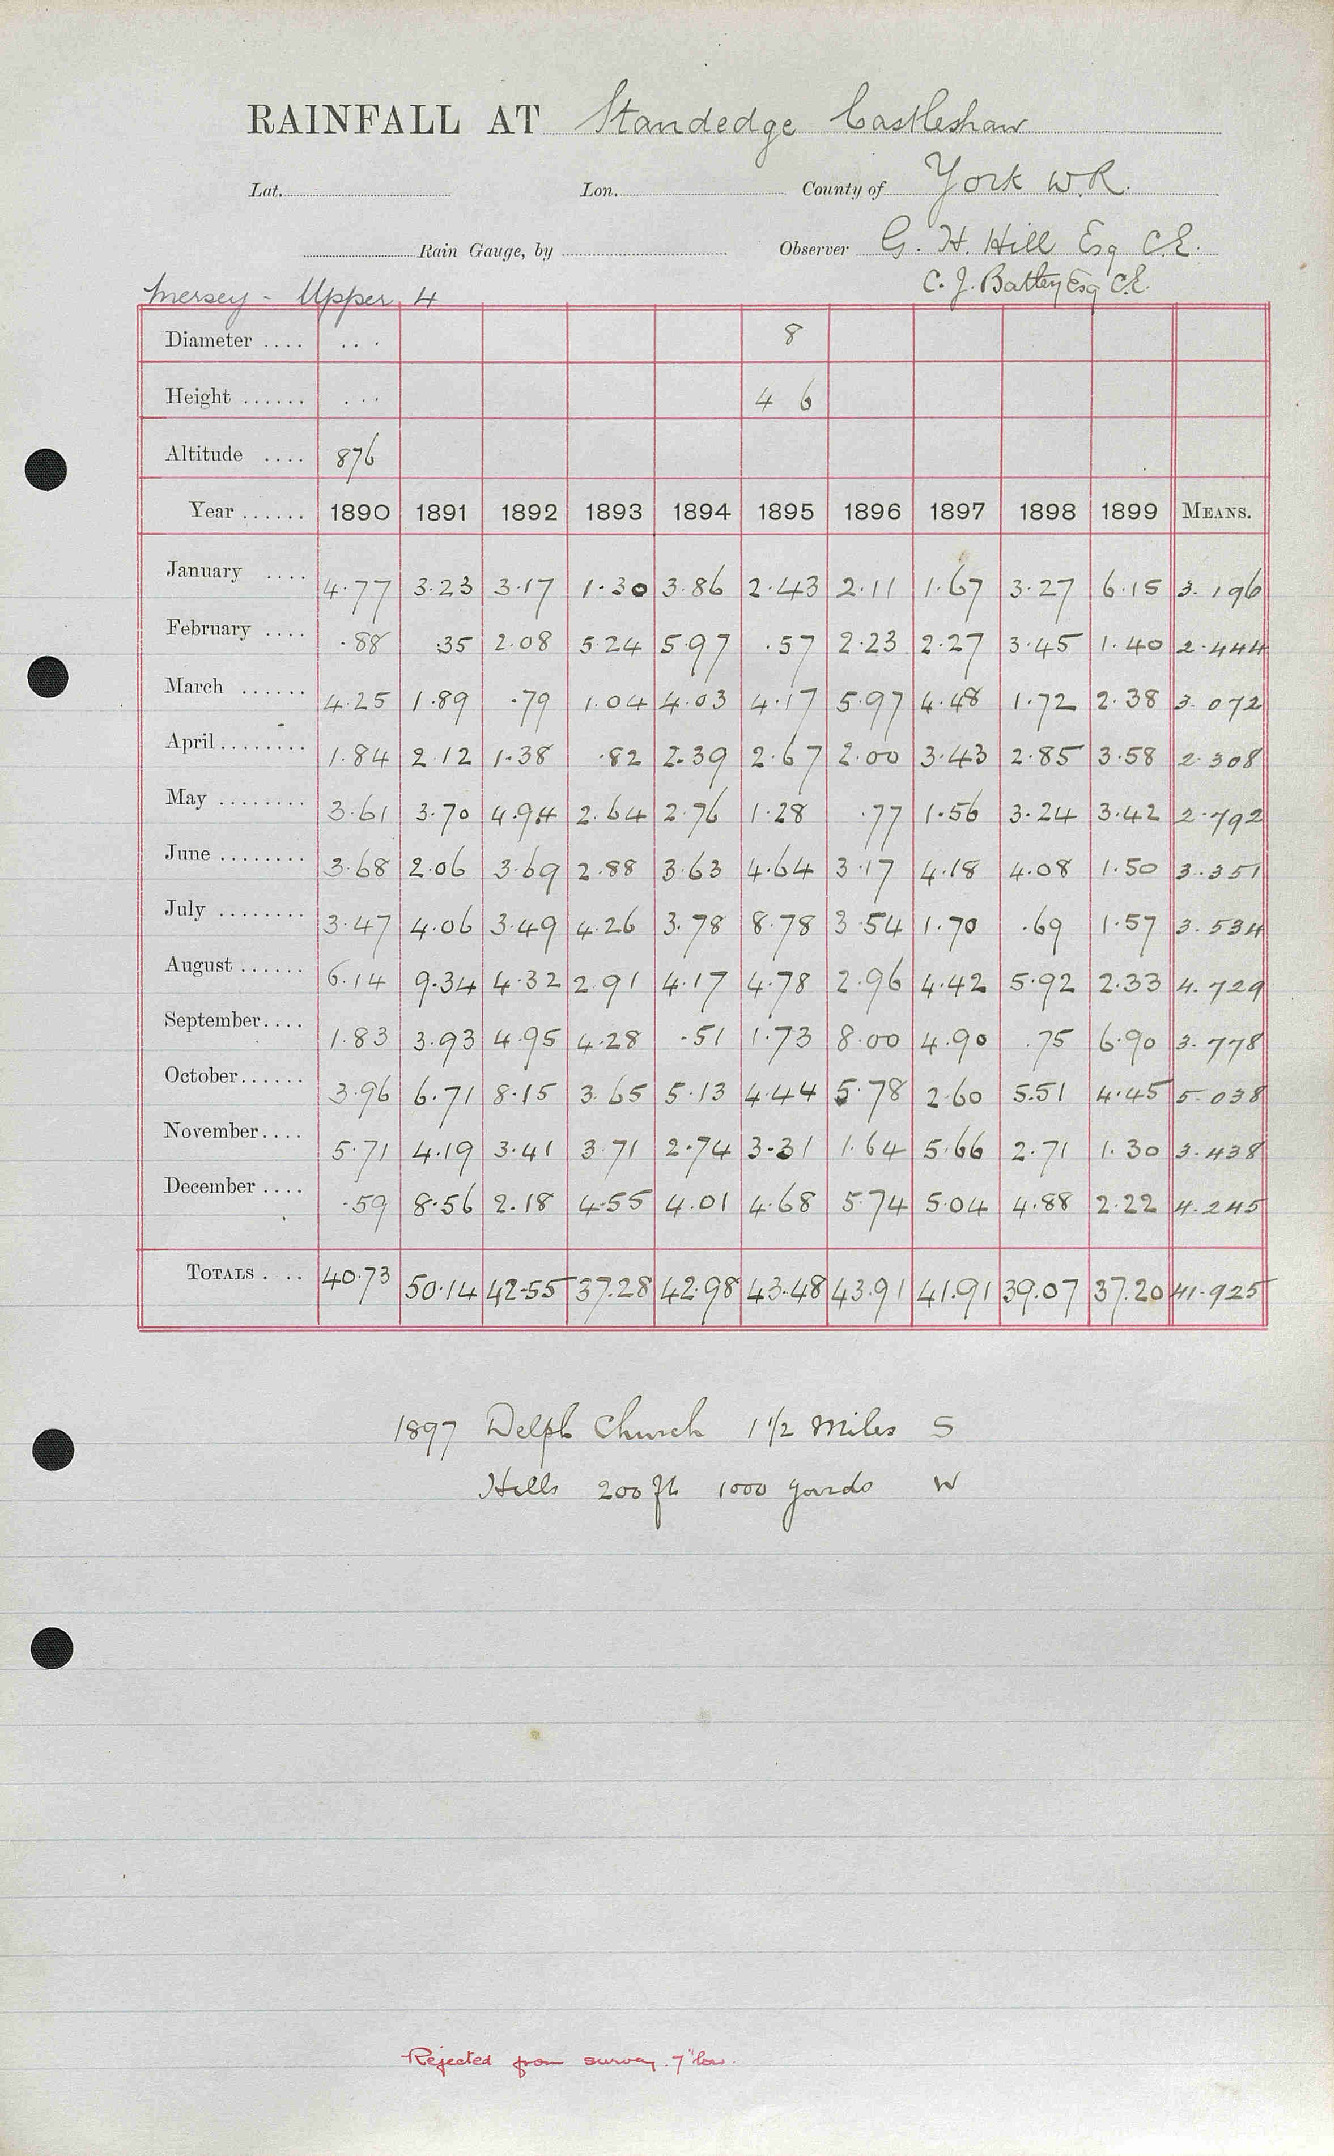 RAINFALL AT Standedge Castleshaw
Lat. Lon. County of York W.R.
Rain Gauge, by Observer G. H. Hill Esq C.E.
C. J. Battey Esq C.E.
Mersey - Upper 4
Diameter .... ... 8
Height ...... ... 4 6
Altitude .... 876
Year ...... 1890 1891 1892 1893 1894 1895 1896 1897 1898 1899 MEANS.
January .... 4.77 3.23 3.17 1.30 3.86 2.43 2.11 1.67 3.27 6.15 3.196
February .... .88 .35 2.08 5.24 5.97 .57 2.23 2.27 3.45 1.40 2.444
March ...... 4.25 1.89 .79 1.04 4.03 4.17 5.97 4.48 1.72 2.38 3.072
April ........ 1.84 2.12 1.38 .82 2.39 2.67 2.00 3.43 2.85 3.58 2.308
May ........ 3.61 3.70 4.94 2.64 2.76 1.28 .77 1.56 3.24 3.42 2.792
June ........ 3.68 2.06 3.69 2.88 3.63 4.64 3.17 4.18 4.08 1.50 3.351
July ........ 3.47 4.06 3.49 4.26 3.78 8.78 3.54 1.70 .69 1.57 3.534
August ...... 6.14 9.34 4.32 2.91 4.17 4.78 2.96 4.42 5.92 2.33 4.729
September .... 1.83 3.93 4.95 4.28 .51 1.73 8.00 4.90 .75 6.90 3.778
October ...... 3.96 6.71 8.15 3.65 5.13 4.44 5.78 2.60 5.51 4.45 5.038
November .... 5.71 4.19 3.41 3.71 2.74 3.31 1.64 5.66 2.71 1.30 3.438
December .... .59 8.56 2.18 4.55 4.01 4.68 5.74 5.04 4.88 2.22 4.245
TOTALS .... 40.73 50.14 42.55 37.28 42.98 43.48 43.91 41.91 39.07 37.20 41.925
1897 Delph Church 1 1/2 Miles S
Hills 200 ft 1000 yards W
Rejected from survey. 7" low.